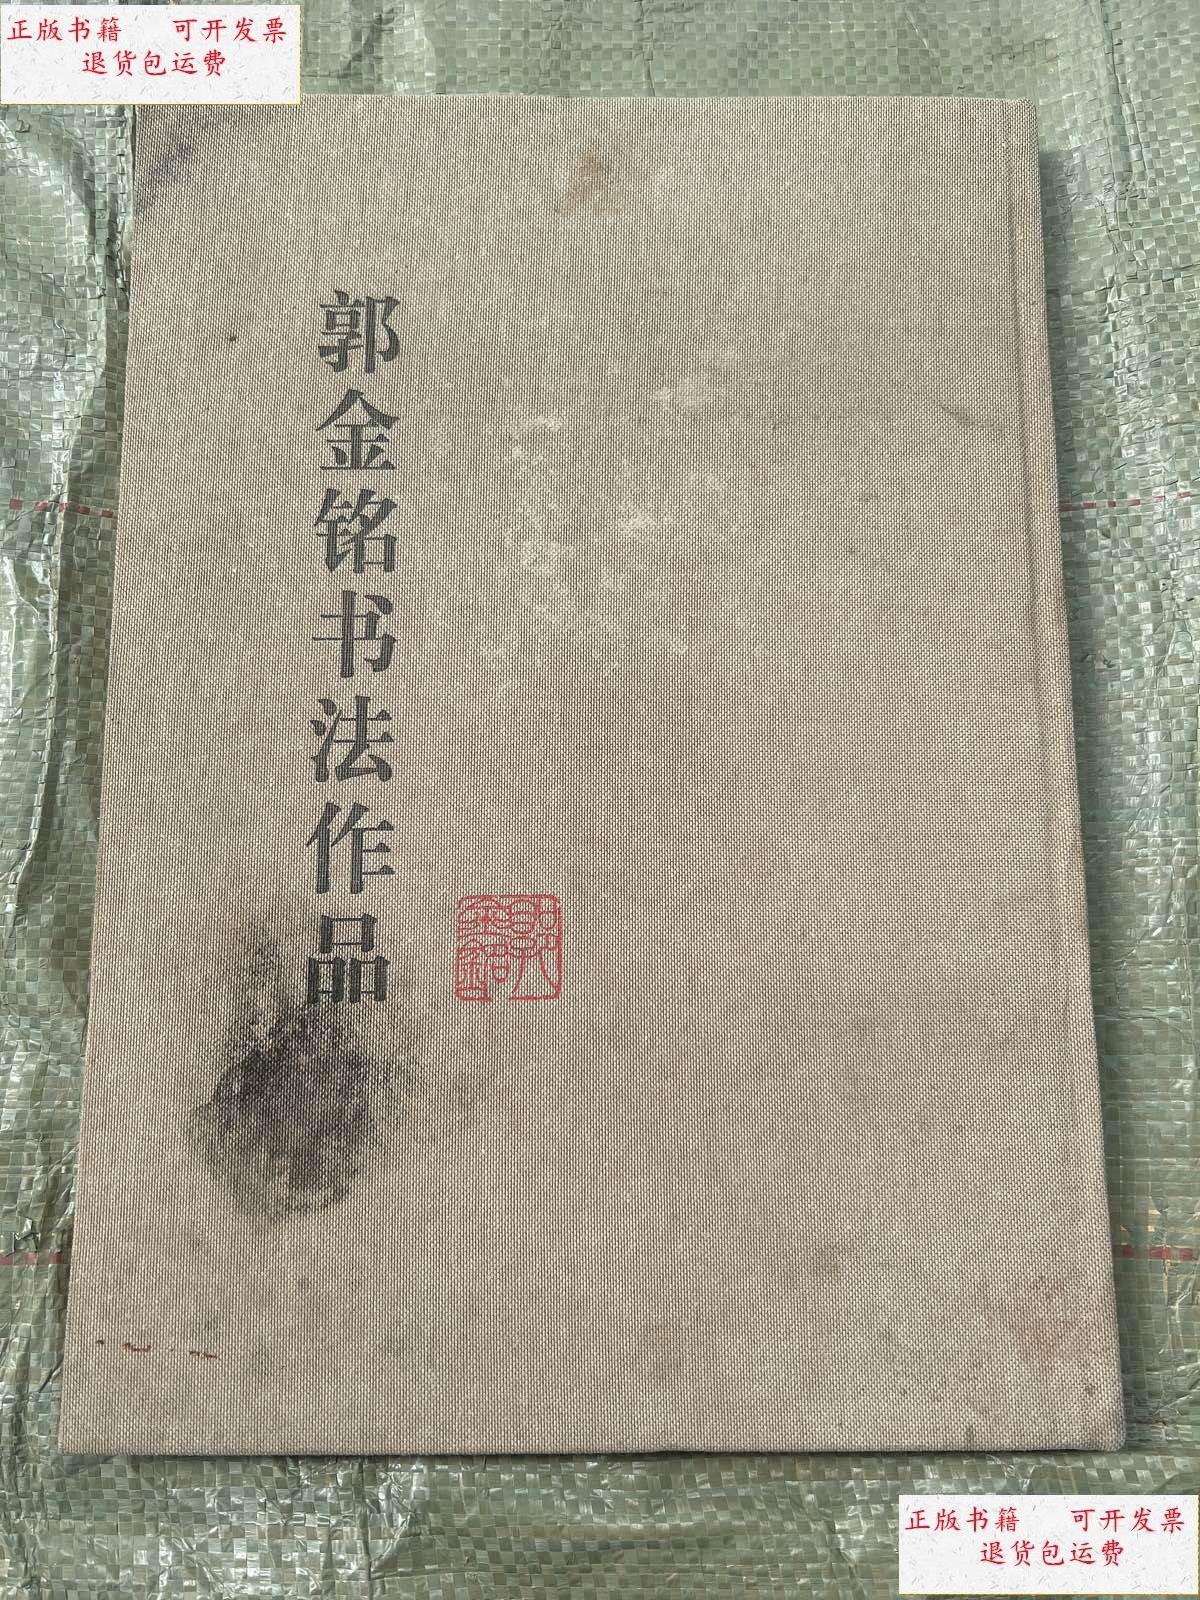 正版书籍 可开发票
退货包运费
郭金铭书法作品
正版书籍 可开发票
退货包运费